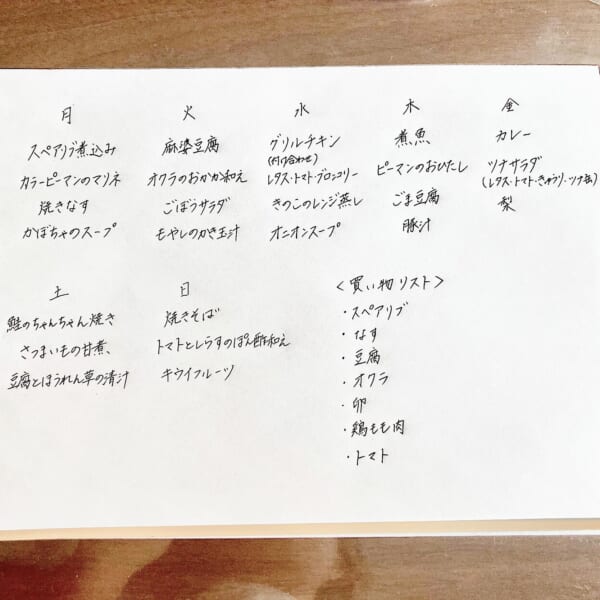 月
スペアリブ煮込み
カラーピーマンのマリネ
焼きなす
かぼちゃのスープ
火
麻婆豆腐
オクラのおかか和え
ごぼうサラダ
もやしのかき玉汁
水
グリルチキン
(付け合わせ)
レタス・トマト・ブロッコリー
きのこのレンジ蒸し
オニオンスープ
木
煮魚
ピーマンのおひたし
ごま豆腐
豚汁
金
カレー
ツナサラダ
(レタス・トマト・きゅうり・ツナ缶)
梨
土
鮭のちゃんちゃん焼き
さつまいもの甘煮、
豆腐とほうれん草の清汁
日
焼きそば
トマトとしらすのぽん酢和え
キウイフルーツ
<買い物リスト>
・スペアリブ
・なす
・豆腐
・オクラ
・卵
・鶏もも肉
・トマト